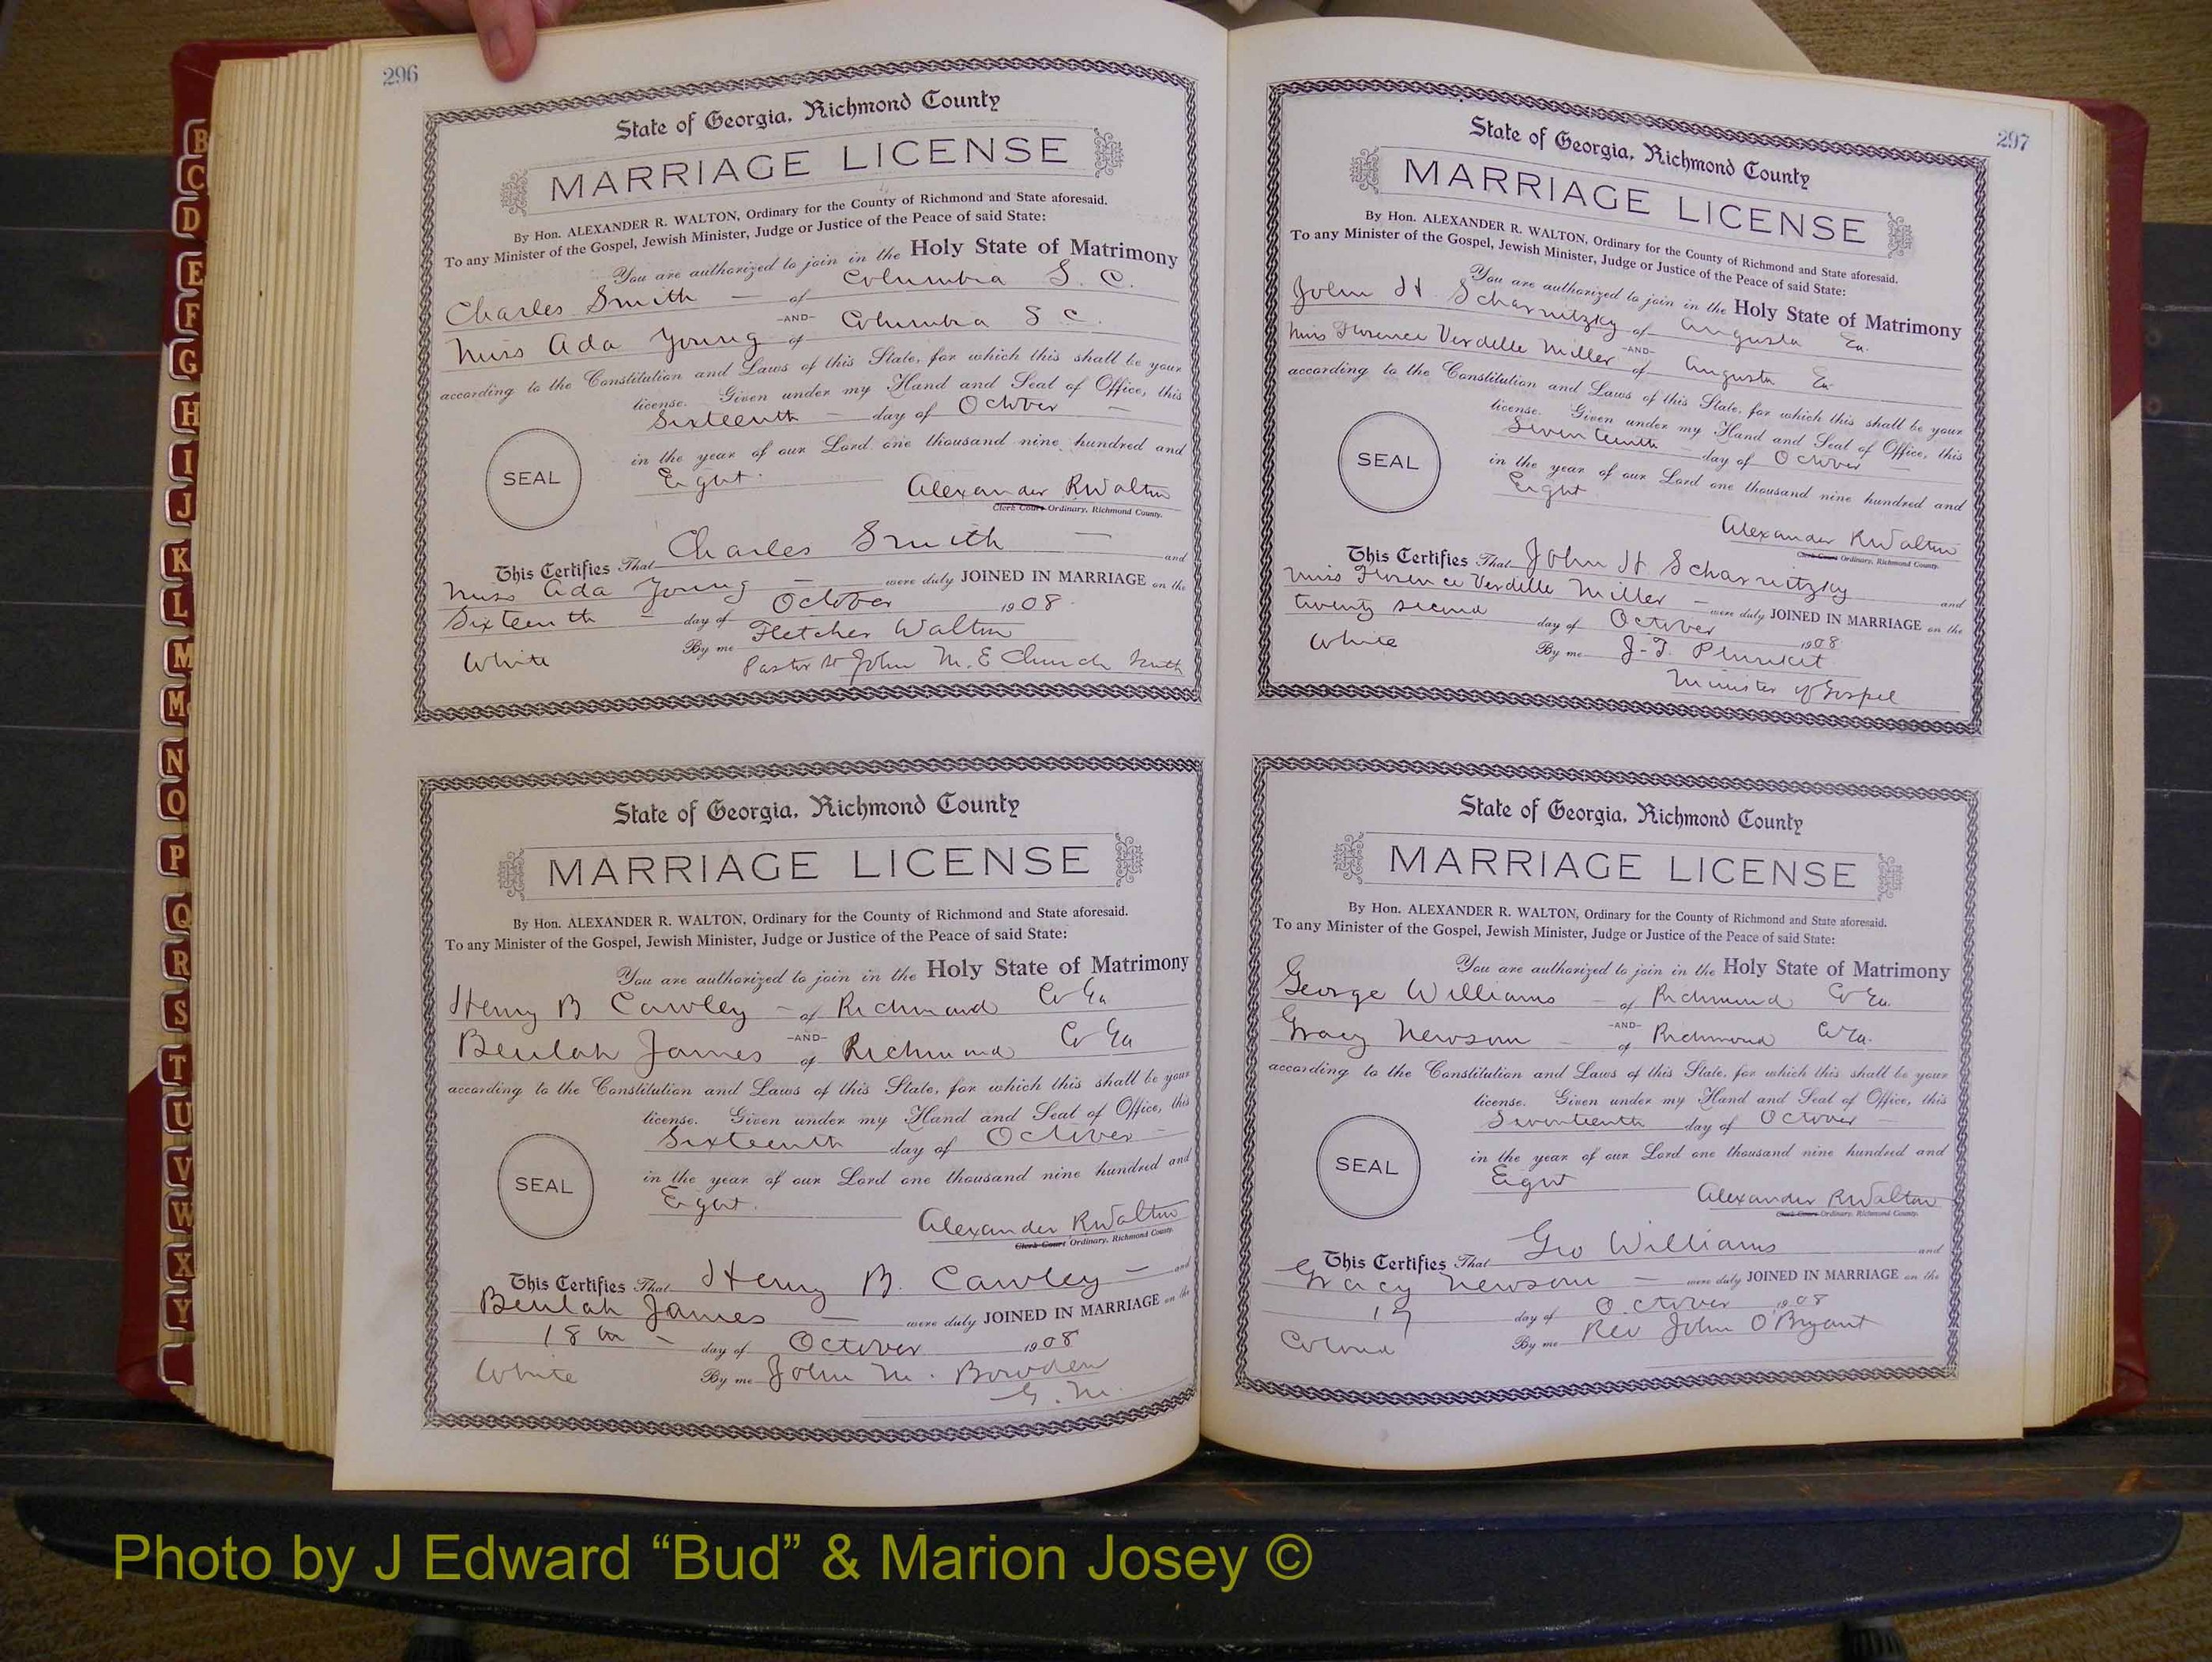 296
State of Georgia, Richmond County
MARRIAGE LICENSE
By Hon. ALEXANDER R. WALTON, Ordinary for the County of Richmond and State aforesaid.
To any Minister of the Gospel, Jewish Minister, Judge or Justice of the Peace of said State:
You are authorized to join in the Holy State of Matrimony
Charles Smith — of Columbia S. C.
-AND-
Miss Ada Young of Columbia S C.
according to the Constitution and Laws of this State, for which this shall be your
license. Given under my Hand and Seal of Office, this
Sixteenth — day of October —
in the year of our Lord one thousand nine hundred and
Eight.
SEAL
Alexander R Walton
Clerk Court Ordinary, Richmond County.
This Certifies That Charles Smith — and
Miss Ada Young — were duly JOINED IN MARRIAGE on the
Sixteenth — day of October 1908
By me Fletcher Walton
White
Pastor St John M. E Church South
State of Georgia, Richmond County
MARRIAGE LICENSE
By Hon. ALEXANDER R. WALTON, Ordinary for the County of Richmond and State aforesaid.
To any Minister of the Gospel, Jewish Minister, Judge or Justice of the Peace of said State:
You are authorized to join in the Holy State of Matrimony
Henry B Cawley — of Richmond Co Ga
-AND-
Beulah James of Richmond Co Ga
according to the Constitution and Laws of this State, for which this shall be your
license. Given under my Hand and Seal of Office, this
Sixteenth day of October —
in the year of our Lord one thousand nine hundred and
Eight.
SEAL
Alexander R Walton
Clerk Court Ordinary, Richmond County.
This Certifies That Henry B. Cawley — and
Beulah James — were duly JOINED IN MARRIAGE on the
18th — day of October 1908
White By me John M. Bowden
G. M.
297
State of Georgia, Richmond County
MARRIAGE LICENSE
By Hon. ALEXANDER R. WALTON, Ordinary for the County of Richmond and State aforesaid.
To any Minister of the Gospel, Jewish Minister, Judge or Justice of the Peace of said State:
You are authorized to join in the Holy State of Matrimony
John H. Scharnitzky of Augusta Ga.
-AND-
Miss Florence Verdelle Miller of Augusta Ga
according to the Constitution and Laws of this State, for which this shall be your
license. Given under my Hand and Seal of Office, this
Seventeenth — day of October —
in the year of our Lord one thousand nine hundred and
Eight
SEAL
Alexander R Walton
Clerk Court Ordinary, Richmond County.
This Certifies That John H. Scharnitzky and
Miss Florence Verdelle Miller — were duly JOINED IN MARRIAGE on the
twenty second day of October 1908
White By me J. T. Plunket
Minister of Gospel
State of Georgia, Richmond County
MARRIAGE LICENSE
By Hon. ALEXANDER R. WALTON, Ordinary for the County of Richmond and State aforesaid.
To any Minister of the Gospel, Jewish Minister, Judge or Justice of the Peace of said State:
You are authorized to join in the Holy State of Matrimony
George Williams — of Richmond Co Ga.
-AND-
Gracy Newsom — of Richmond Co Ga.
according to the Constitution and Laws of this State, for which this shall be your
license. Given under my Hand and Seal of Office, this
Seventeenth day of October —
in the year of our Lord one thousand nine hundred and
Eight
SEAL
Alexander R Walton
Clerk Court Ordinary, Richmond County.
This Certifies That Geo Williams and
Gracy Newsom — were duly JOINED IN MARRIAGE on the
17 day of October 1908
Colored By me Rev John O'Bryant
B
C
D
E
F
G
H
I
J
K
L
M
Mc
N
O
P
Q
R
S
T
U
V
W
X
Y
Photo by J Edward “Bud” & Marion Josey ©